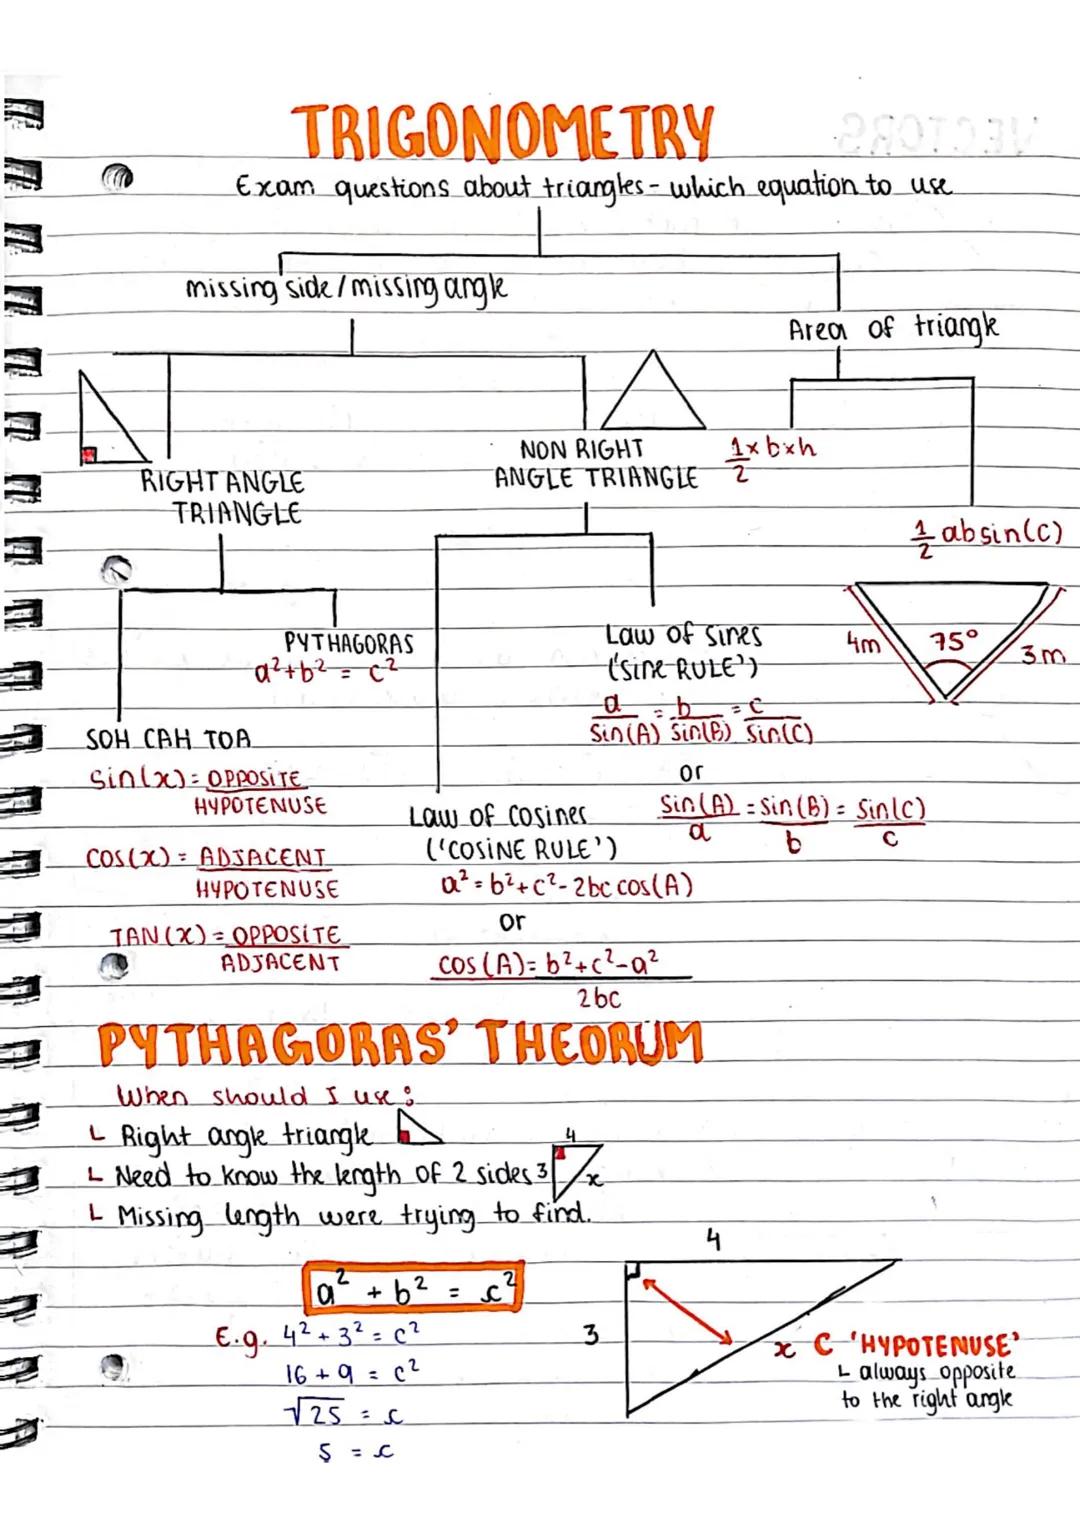 TRIGONOMETRY
VECTORS
Exam questions about triangles - which equation to use
missing side / missing angle
Area of triangle
RIGHT ANGLE
TRIANGLE
NON RIGHT
ANGLE TRIANGLE
1/2 × b × h
1/2 ab sin(C)
4m
75°
3m
PYTHAGORAS
a² + b² = c²
SOH CAH TOA
Sin(x) = OPPOSITE / HYPOTENUSE
COS(x) = ADJACENT / HYPOTENUSE
TAN(X) = OPPOSITE / ADJACENT
Law of sines
('sine RULE')
a / Sin(A) = b / Sin(B) = c / Sin(C)
or
Sin(A) / a = Sin(B) / b = Sin(C) / c
Law of cosines
('COSINE RULE')
a² = b² + c² - 2bc cos(A)
or
COS(A) = b² + c² - a² / 2bc
PYTHAGORAS' THEORUM
When should I use:
Right angle triangle
Need to know the length of 2 sides
4
3
x
Missing length were trying to find.
a² + b² = c²
E.g. 4² + 3² = c²
16 + 9 = c²
√25 = c
5 = c
4
3
x C 'HYPOTENUSE'
always opposite
to the right angle